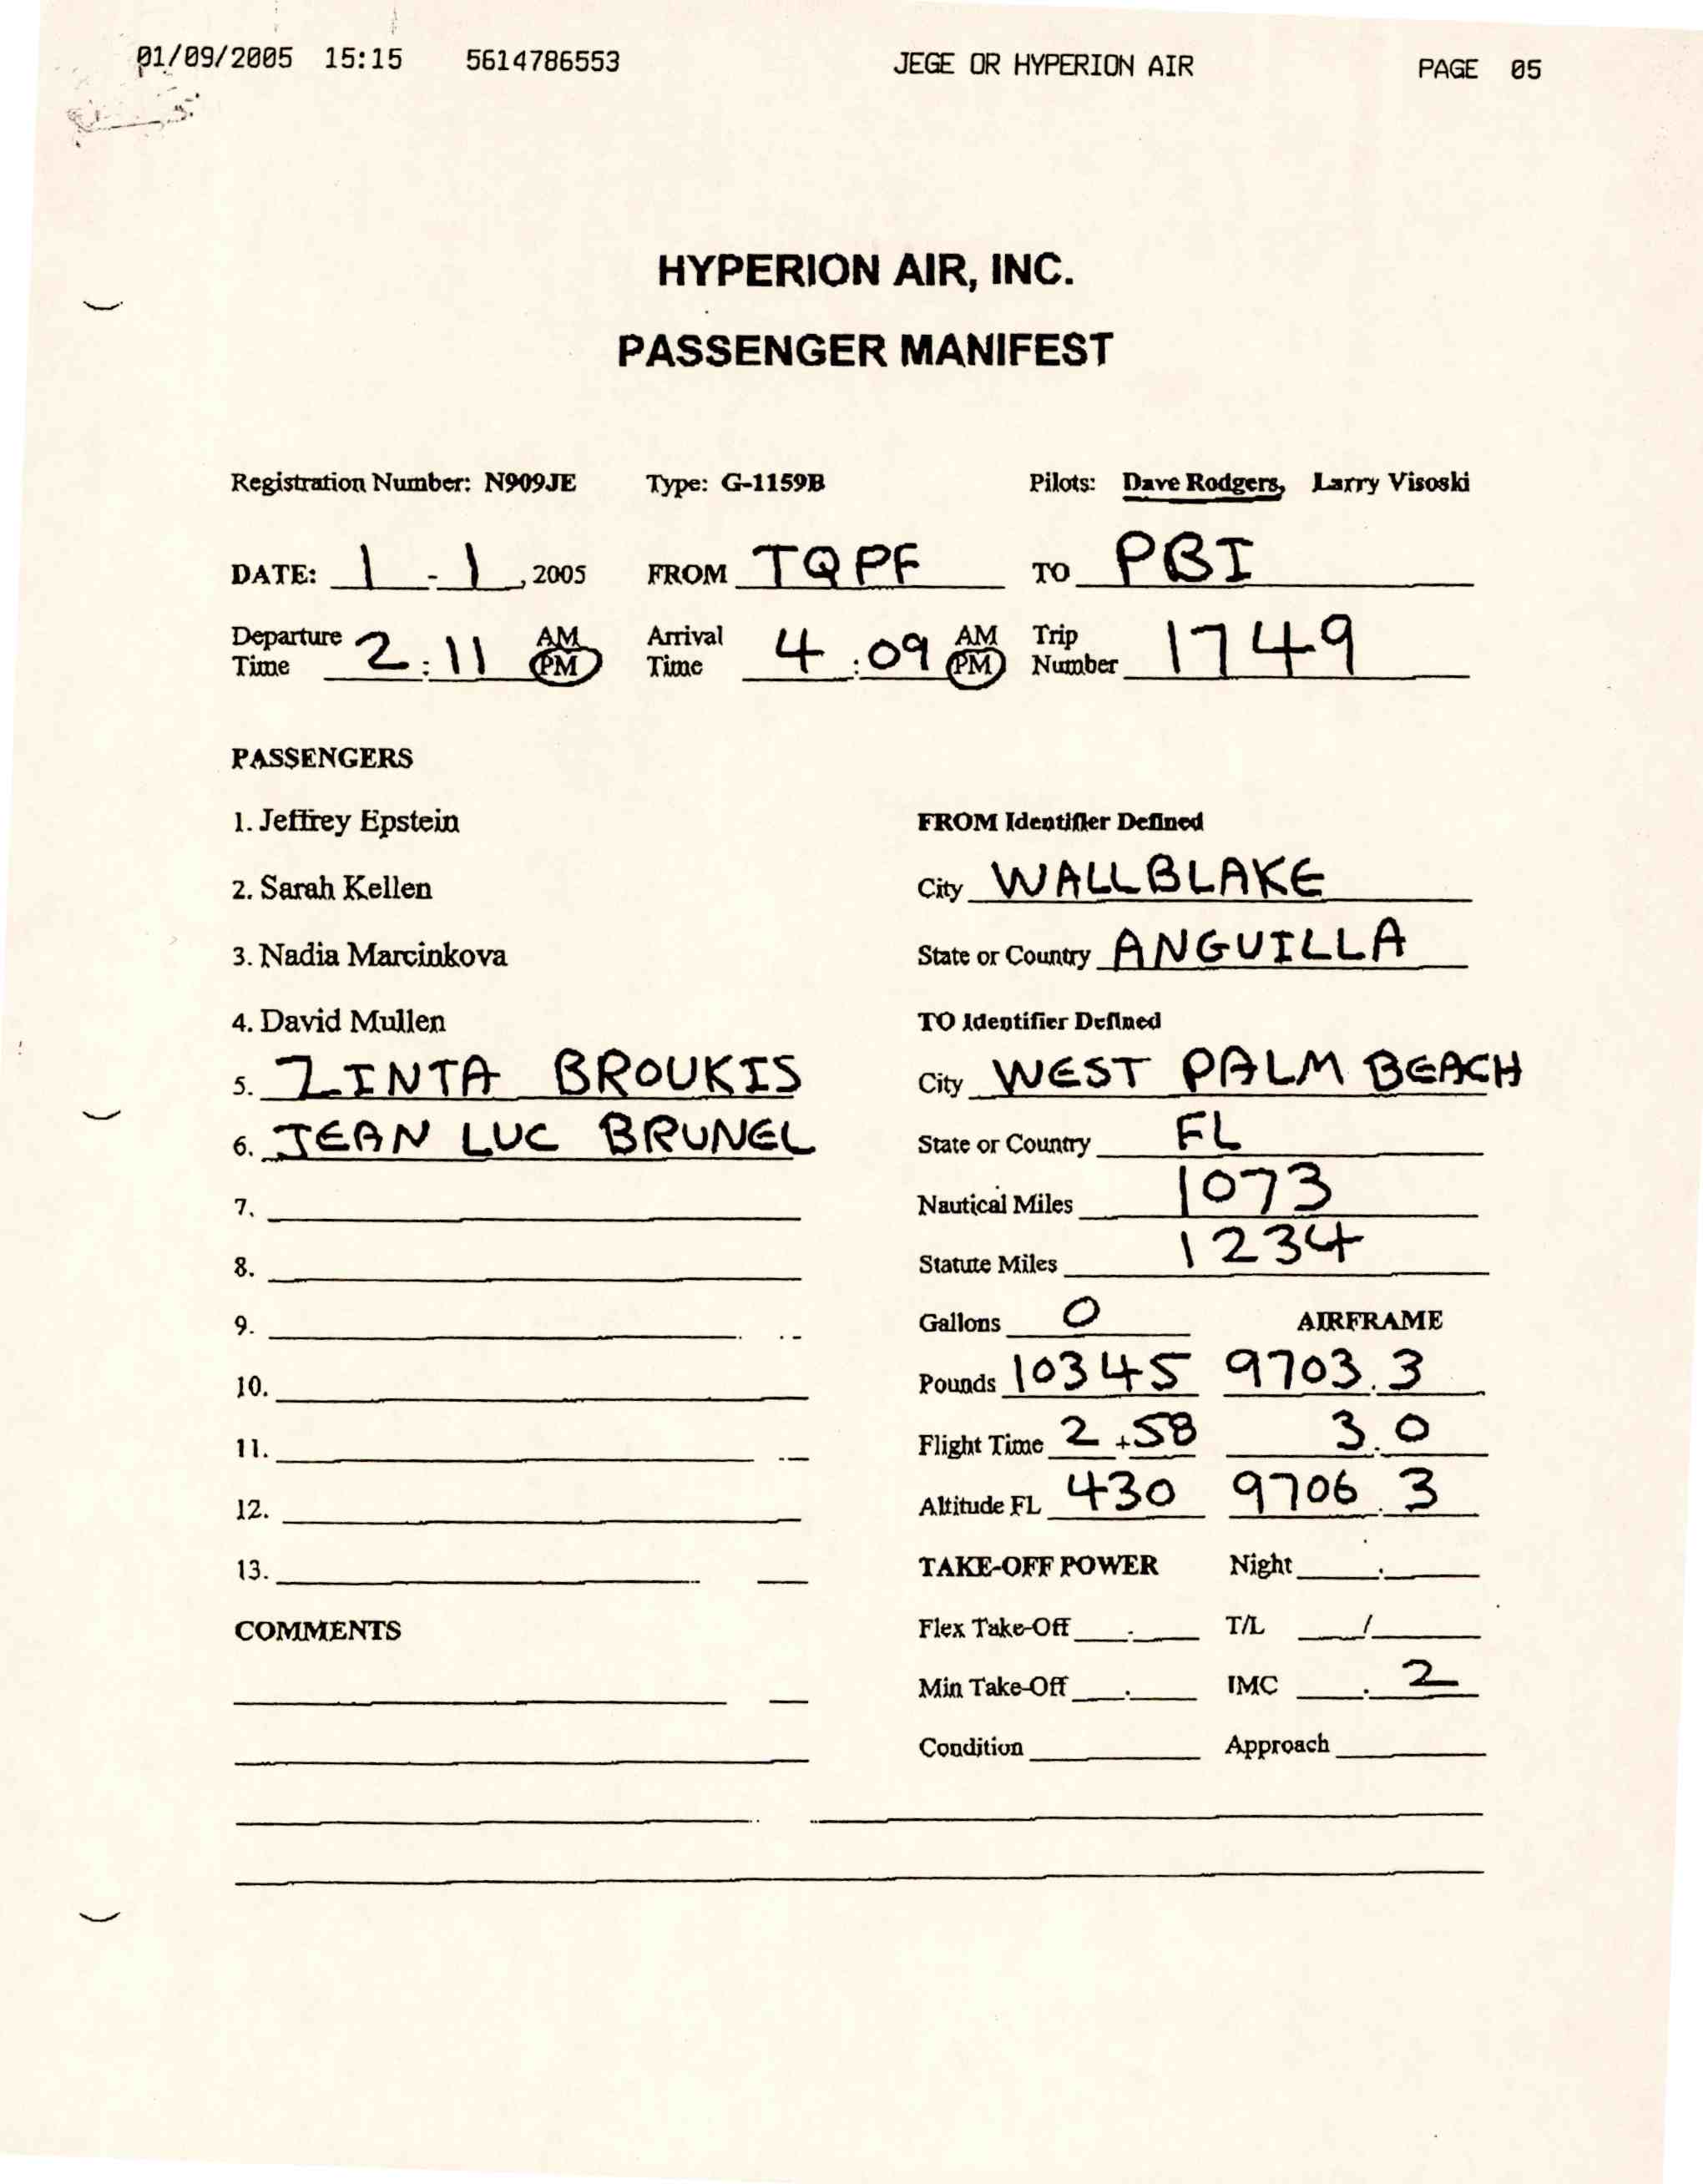 01/09/2005 15:15 5614786553 JEGE OR HYPERION AIR PAGE 05
HYPERION AIR, INC.
PASSENGER MANIFEST
Registration Number: N909JE Type: G-1159B Pilots: Dave Rodgers, Larry Visoski
DATE: 1 - 1, 2005 FROM TQPF TO PBI
Departure Time 2:11 AM PM Arrival Time 4:09 AM PM Trip Number 1749
PASSENGERS
1. Jeffrey Epstein FROM Identifier Defined
2. Sarah Kellen City WALLBLAKE
3. Nadia Marcinkova State or Country ANGUILLA
4. David Mullen TO Identifier Defined
5. ZINTA BROUKIS City WEST PALM BEACH
6. JEAN LUC BRUNEL State or Country FL
7. Nautical Miles 1073
8. Statute Miles 1234
9. Gallons 0 AIRFRAME
10. Pounds 10345 9703.3
11. Flight Time 2+58 3.0
12. Altitude FL 430 9706.3
13. TAKE-OFF POWER Night .
COMMENTS Flex Take-Off . T/L /
Min Take-Off . IMC .2
Condition Approach